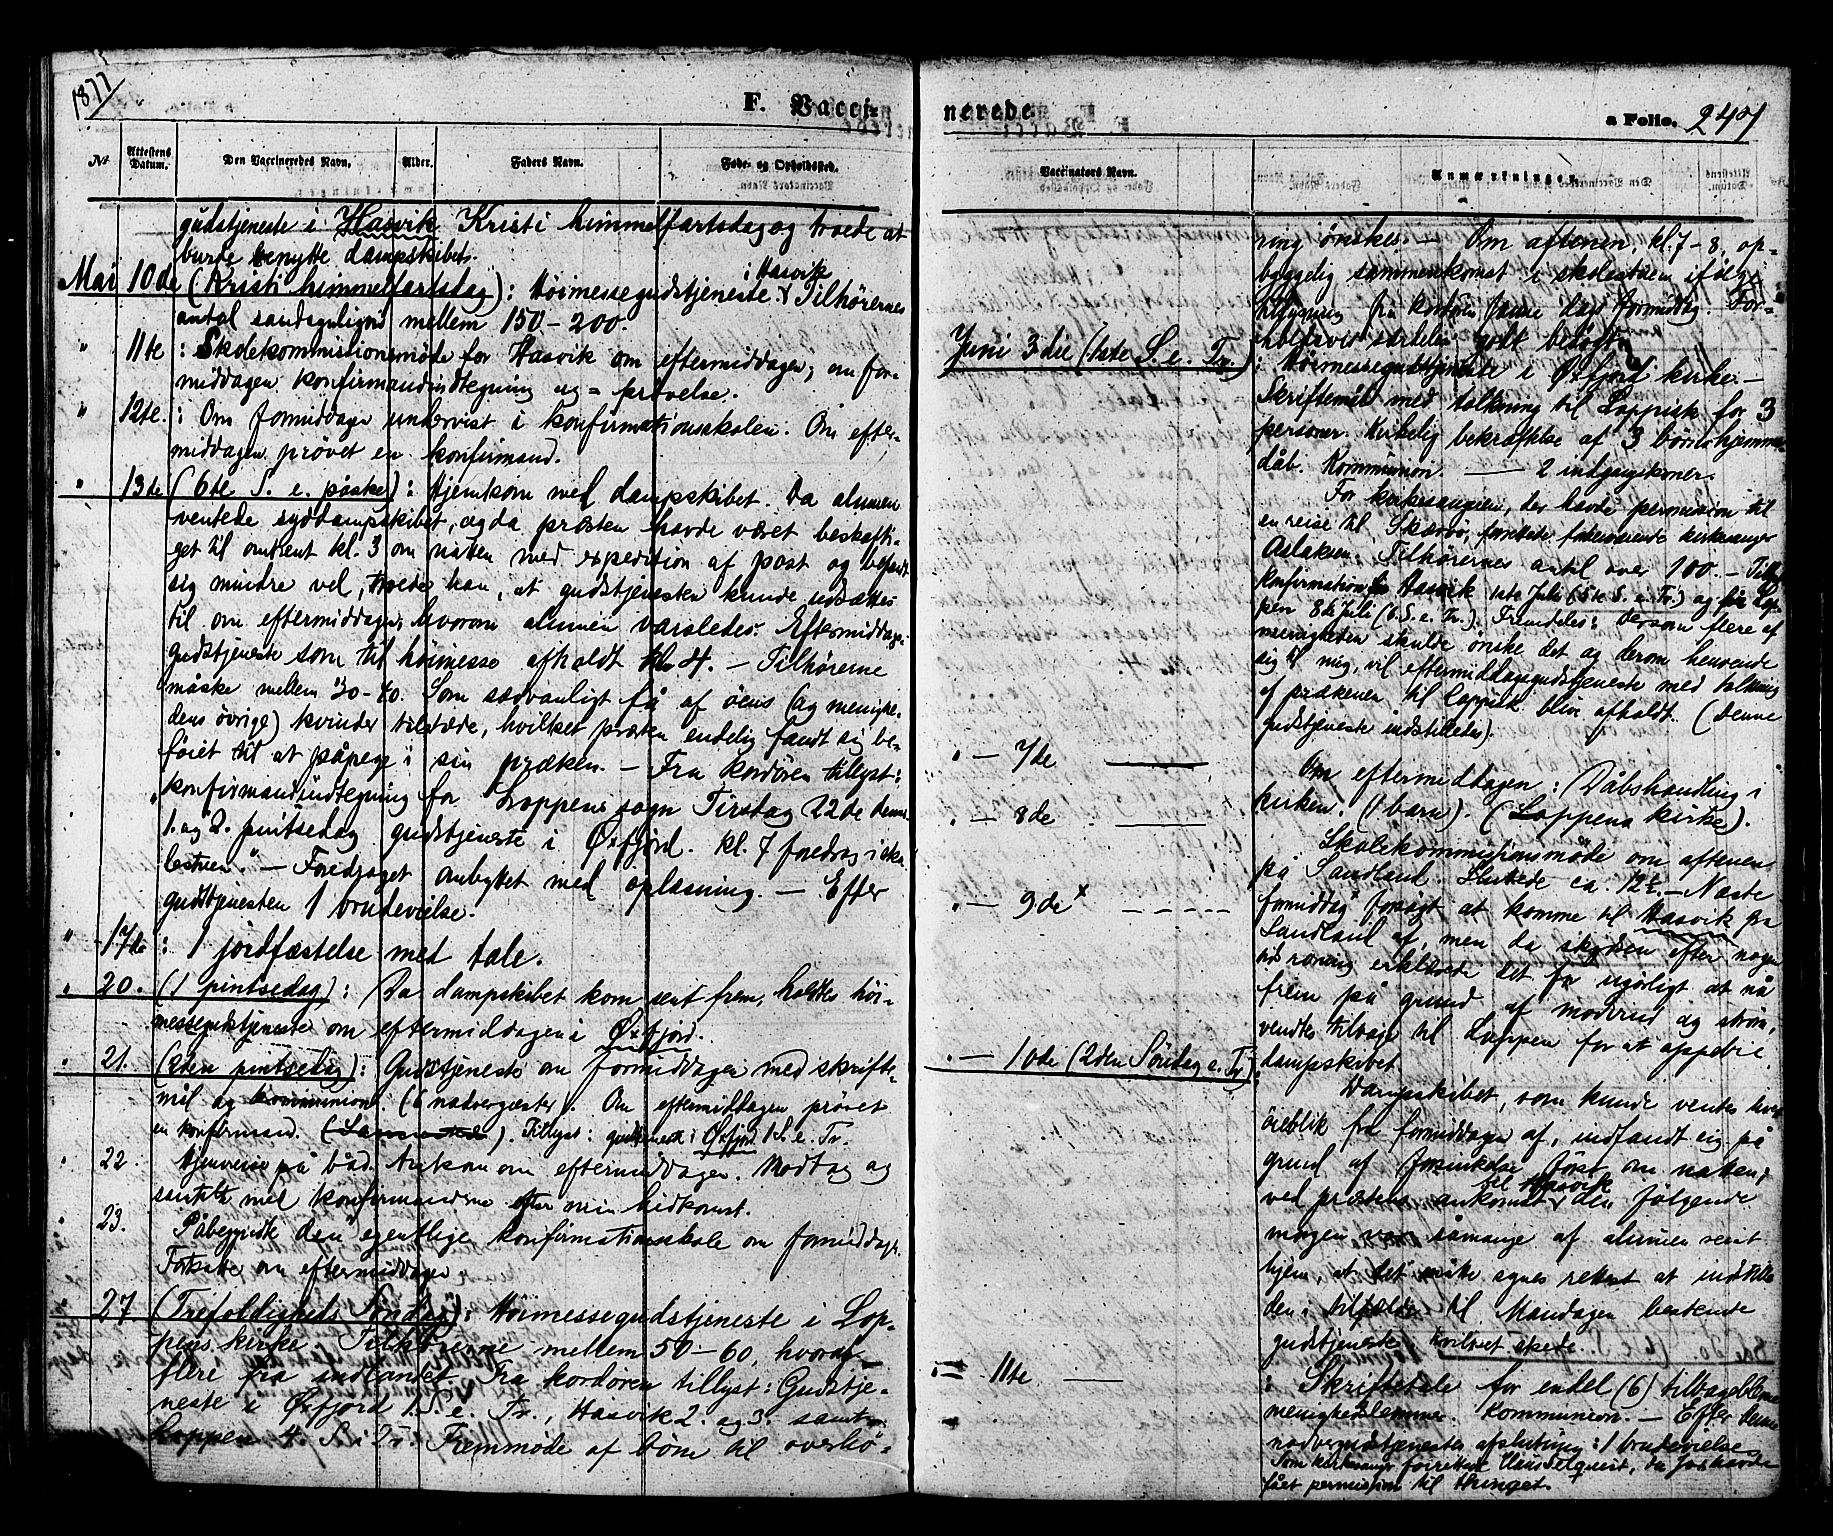 1877
F. Vacci-
Nr.
Attestens Datum.
Den Vaccineredes Navn,
Alder.
Faders Navn.
Føde- og Opholdssted.
gudstjeneste i Hasvik Kristi himmelfartsdag og troede at
burde benytte dampskibet.
Mai 10de (Kristi himmelfartsdag): Høimessegudstjeneste i Hasvik. Tilhørernes
antal sandsynligvis mellem 150-200.
" 11te : Skolekommissionsmøde for Hasvik om eftermiddagen; om for-
middagen konfirmandindtegning og = prøvelse.
" 12te. : Om formiddagen undervist i konfirmationsskolen. Om efter-
middagen prøvet en konfirmand.
" 13de (6te S. e. påske): Hjemkom med dampskibet. Da alumen
ventede syddampskibet, og da præsten havde været beskjæfti-
get til omtrent kl. 3 om natten med expedition af post og befandt
sig mindre vel, troede han, at gudstjenesten kunde udsættes
til om eftermiddagen, hvorom alumen varsledes. Eftermiddags-
gudstjeneste som til høimesse afholdt kl. 4. - Tilhørerne
måske mellem 30-40. Som sædvanligt få af øens (og menighe-
dens øvrige) kvinder tilstæde, hvilket præsten endelig fandt sig be-
føiet til at påpege i sin præken. - Fra kordøren tillyst:
"konfirmandindtegning for Loppens sogn Tirsdag 22de dennes
1. og 2. pintsedag gudstjeneste i Øxfjord. kl. 7 foredrag i sko-
lestuen." - Foredraget ombyttet med oplæsning. - Efter
gudstjenesten 1 brudevielse.
" 17de : 1 jordfæstelse med tale.
" 20. (1 pintsedag): Da dampskibet kom sent frem, holdtes høi-
messegudstjeneste om eftermiddagen i Øxfjord.
" 21. (2den pintsedag): Gudstjeneste om formiddagen med skrifte-
mål og kommunion. (6 nadvergæster). Om eftermiddagen prøvet
en konfirmand. Tillyst: gudstjeneste i Øxfjord 1 S. e. Tr.
" 22. Hjemreise på båd. Ankom om eftermiddagen. Modtog og
samtalte med konfirmanderne efter min hidkomst.
" 23. Påbegyndte den egentlige konfirmationsskole om formiddagen.
Fortsatte om eftermiddagen.
" 27 (Trefoldigheds Søndag): Høimessegudstjeneste i Lop-
pens kirke. Tilhørerne mellem 50-60, hvoraf
flere fra indlandet. Fra kordøren tillyst: Gudstje-
neste i Øxfjord 1. S. e. Tr., Hasvik 2. og 3. samt
Loppen 4. S. e. Tr. Fremmøde af børn til overhø-
nerede.
a Folio. 247
Vaccinators Navn.
Anmærkninger.
ring ønskes. - Om aftenen, kl. 7-8, op-
byggelig sammenkomst i skolestuen ifølge
tillysning fra kordøren samme dags formiddag. For-
Juni 3die (1ste S. e. Tr.)
: Høimessegudstjeneste i Øxfjord kirke. -
Skriftemål med tolkning til Lappisk for 3
personer. Kirkelig bekræftelse af 3 børns hjemme-
dåb. Kommunion. - 2 indgangskoner.
For kirkesangeren, der havde permission til
en reise til Skærvø, forrettede forhenværende kirkesanger
Aslaksen. Tilhørernes antal over 100. - Tillyst
konfirmation for Hasvik 1ste Juli (5te S. e. Tr.) og for Lop-
pen 8de Juli (6. S. e. Tr.). Fremdeles: Dersom flere af
menigheden skulde ønske det og derom henvende
sig til mig, vil eftermiddagsgudstjeneste med tolkning
af prækenen til Lappisk blive afholdt. (Denne
gudstjeneste indstilledes).
" - 7de
Om eftermiddagen: Dåbshandling i
kirken. (1 barn). (Loppens kirke).
" - 8de
Skolekommissionsmøde om aftenen
på Sandland. Sluttede ca. 12½. - Næste
" - 9de x
formiddag forsøgt at komme til Hasvik fra
Sandland af, men da skydsen efter nogen
tids roning erklærede det for ugørligt at nå
frem på grund af modvind og strøm,
vendtes tilbage til Loppen for at oppebie
dampskibet
" - 10de (2den Søndag e. Tr.):
Dampskibet, som kunde ventes hvert
øieblik fra formiddagen af, indfandt sig på
grund af forsinkelse først om natten;
ved præstens ankomst til Hasvik den følgende
morgen var såmange af alumen reist
hjem, at det måtte synes rettest at indstille
den i tilfælde til Mandagen berammede
gudstjeneste, hvilket skede.
" - 11te
: Skriftetale for endel (6) tilbageblevne
menighedslemmer. Kommunion. - Efter denne
nadvergudstjenestes afslutning: 1 brudevielse.
Som kirkesanger forrettede Claus Selquist, da J. havde
fået permission til thinget.